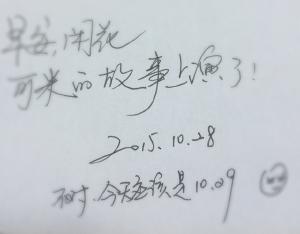 早安,闲花
可米的故事上演了!
2015.10.28
不对.今天应该是10.09